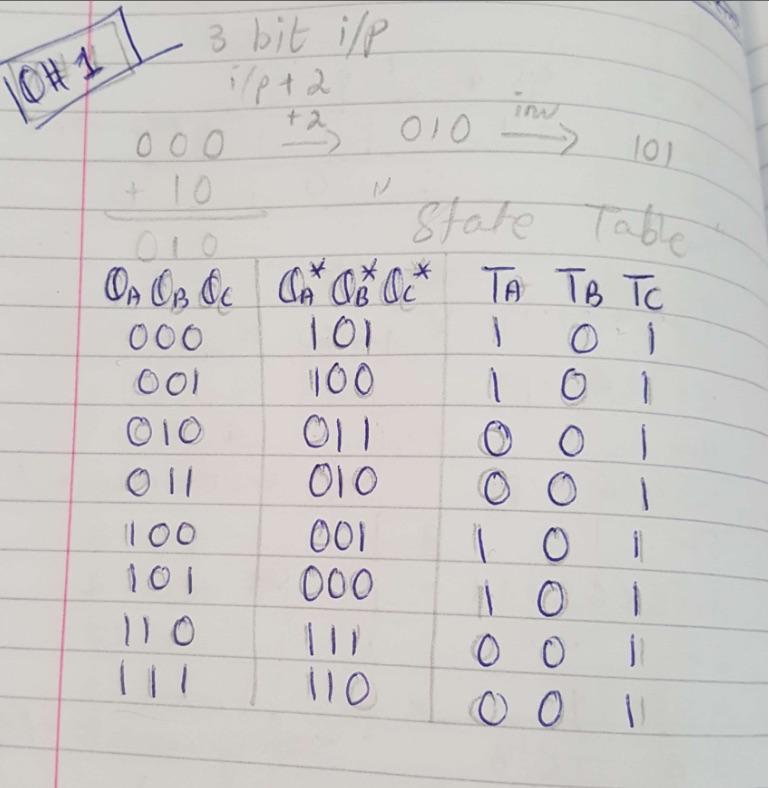 Q# 1
3 bit i/p
i/p + 2
000 +2→ 010 inv→ 101
+ 10
010
State Table
QA QB QC QA* QB* QC* TA TB TC
000 101 1 0 1
001 100 1 0 1
010 011 0 0 1
011 010 0 0 1
100 001 1 0 1
101 000 1 0 1
110 111 0 0 1
111 110 0 0 1